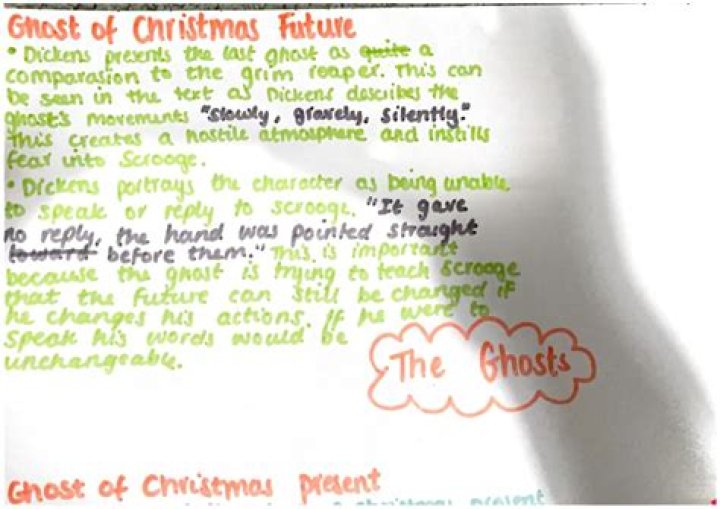 Ghost of Christmas Future
• Dickens presents the last ghost as quite a
comparasion to the grim reaper. This can
be seen in the text as Dickens describes the
ghost's movements "slowly, gravely, silently."
This creates a hostile atmosphere and instills
fear into Scrooge.
• Dickens portrays the character as being unable
to speak or reply to scrooge. "It gave
no reply, the hand was pointed straight
toward before them." This is important
because the ghost is trying to teach scrooge
that the future can still be changed if
he changes his actions. If he were to
speak his words would be
unchangeable.
The Ghosts
Ghost of Christmas present
christmas present